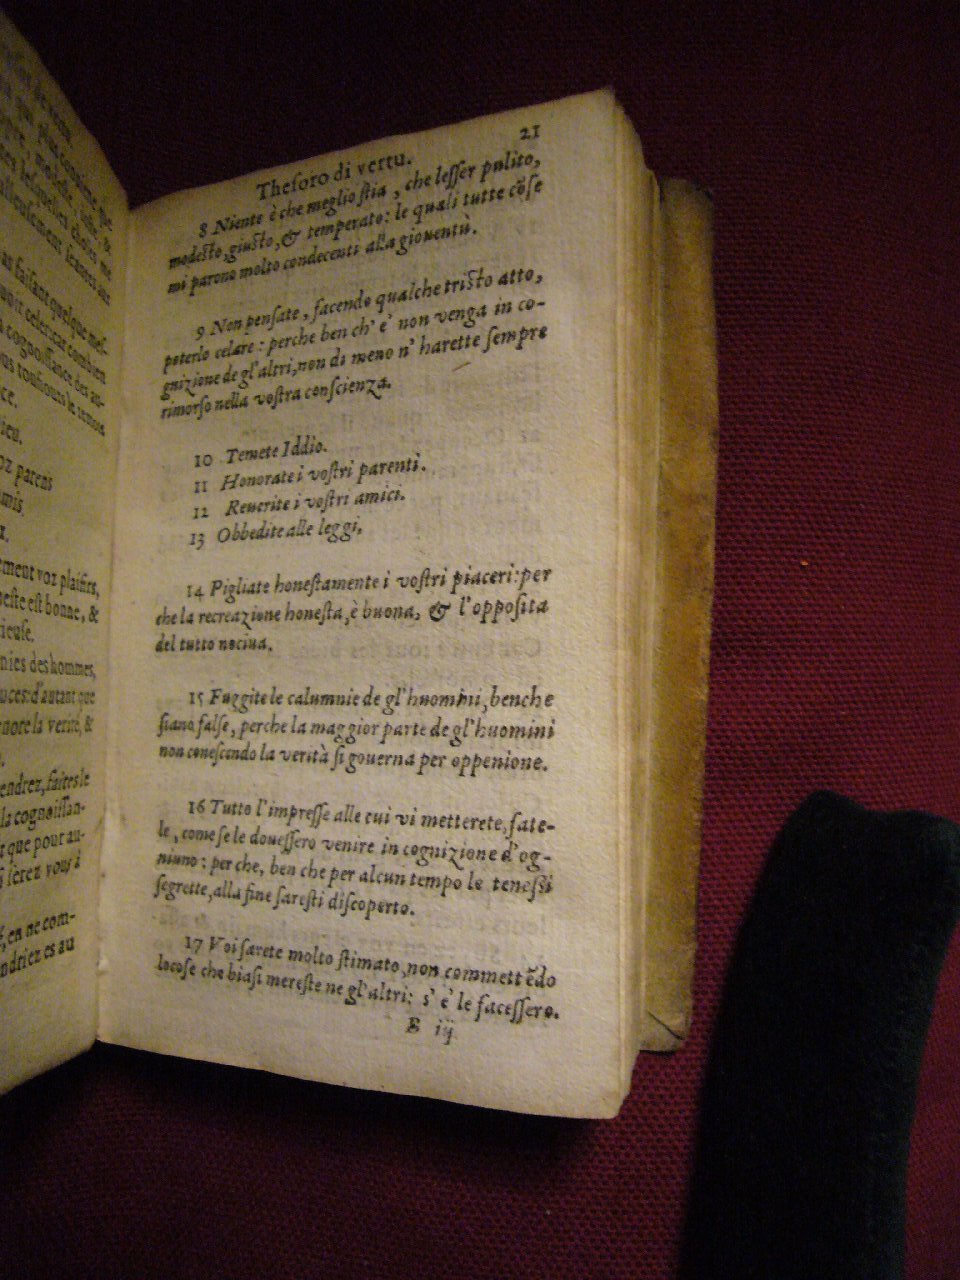 que
&
mes-
combien
cognoissance des au-
ce.
ieu.
oz parens
mis.
ment voz plaisirs,
neste est bonne, &
rieuse.
nies des hommes,
uces: d'autant que
nore la verité, &
endrez, faites le
la cognoissan-
r que pour au-
serez vous à
, en ne com-
ndriez es au
Thesoro di vertu. 21
8 Niente è che meglio stia, che lesser pulito,
modesto, giusto, & temperato: le quali tutte cose
mi parono molto condecenti alla gioventù.
9 Non pensate, facendo qualche tristo atto,
poterlo celare: perche ben ch' e' non venga in co-
gnizione de gl'altri, non di meno n' harette sempre
rimorso nella vostra conscienza.
10 Temete Iddio.
11 Honorate i vostri parenti.
12 Reuerite i vostri amici.
13 Obbedite alle leggi,
14 Pigliate honestamente i vostri piaceri: per
che la recreazione honesta, è buona, & l'opposita
del tutto nociua.
15 Fuggite le calumnie de gl'huomini, benche
siano false, perche la maggior parte de gl'huomini
non conescendo la verità si gouerna per oppenione.
16 Tutto l'impresse alle cui vi metterete, fate-
le, come se le douessero venire in cognizione d'og-
niuno: per che, ben che per alcun tempo le tenessi
segrette, alla fine saresti discoperto.
17 Voi sarete molto stimato, non commettẽdo
lo cose che biasi mereste ne gl'altri: s' e' le facessero.
B iij